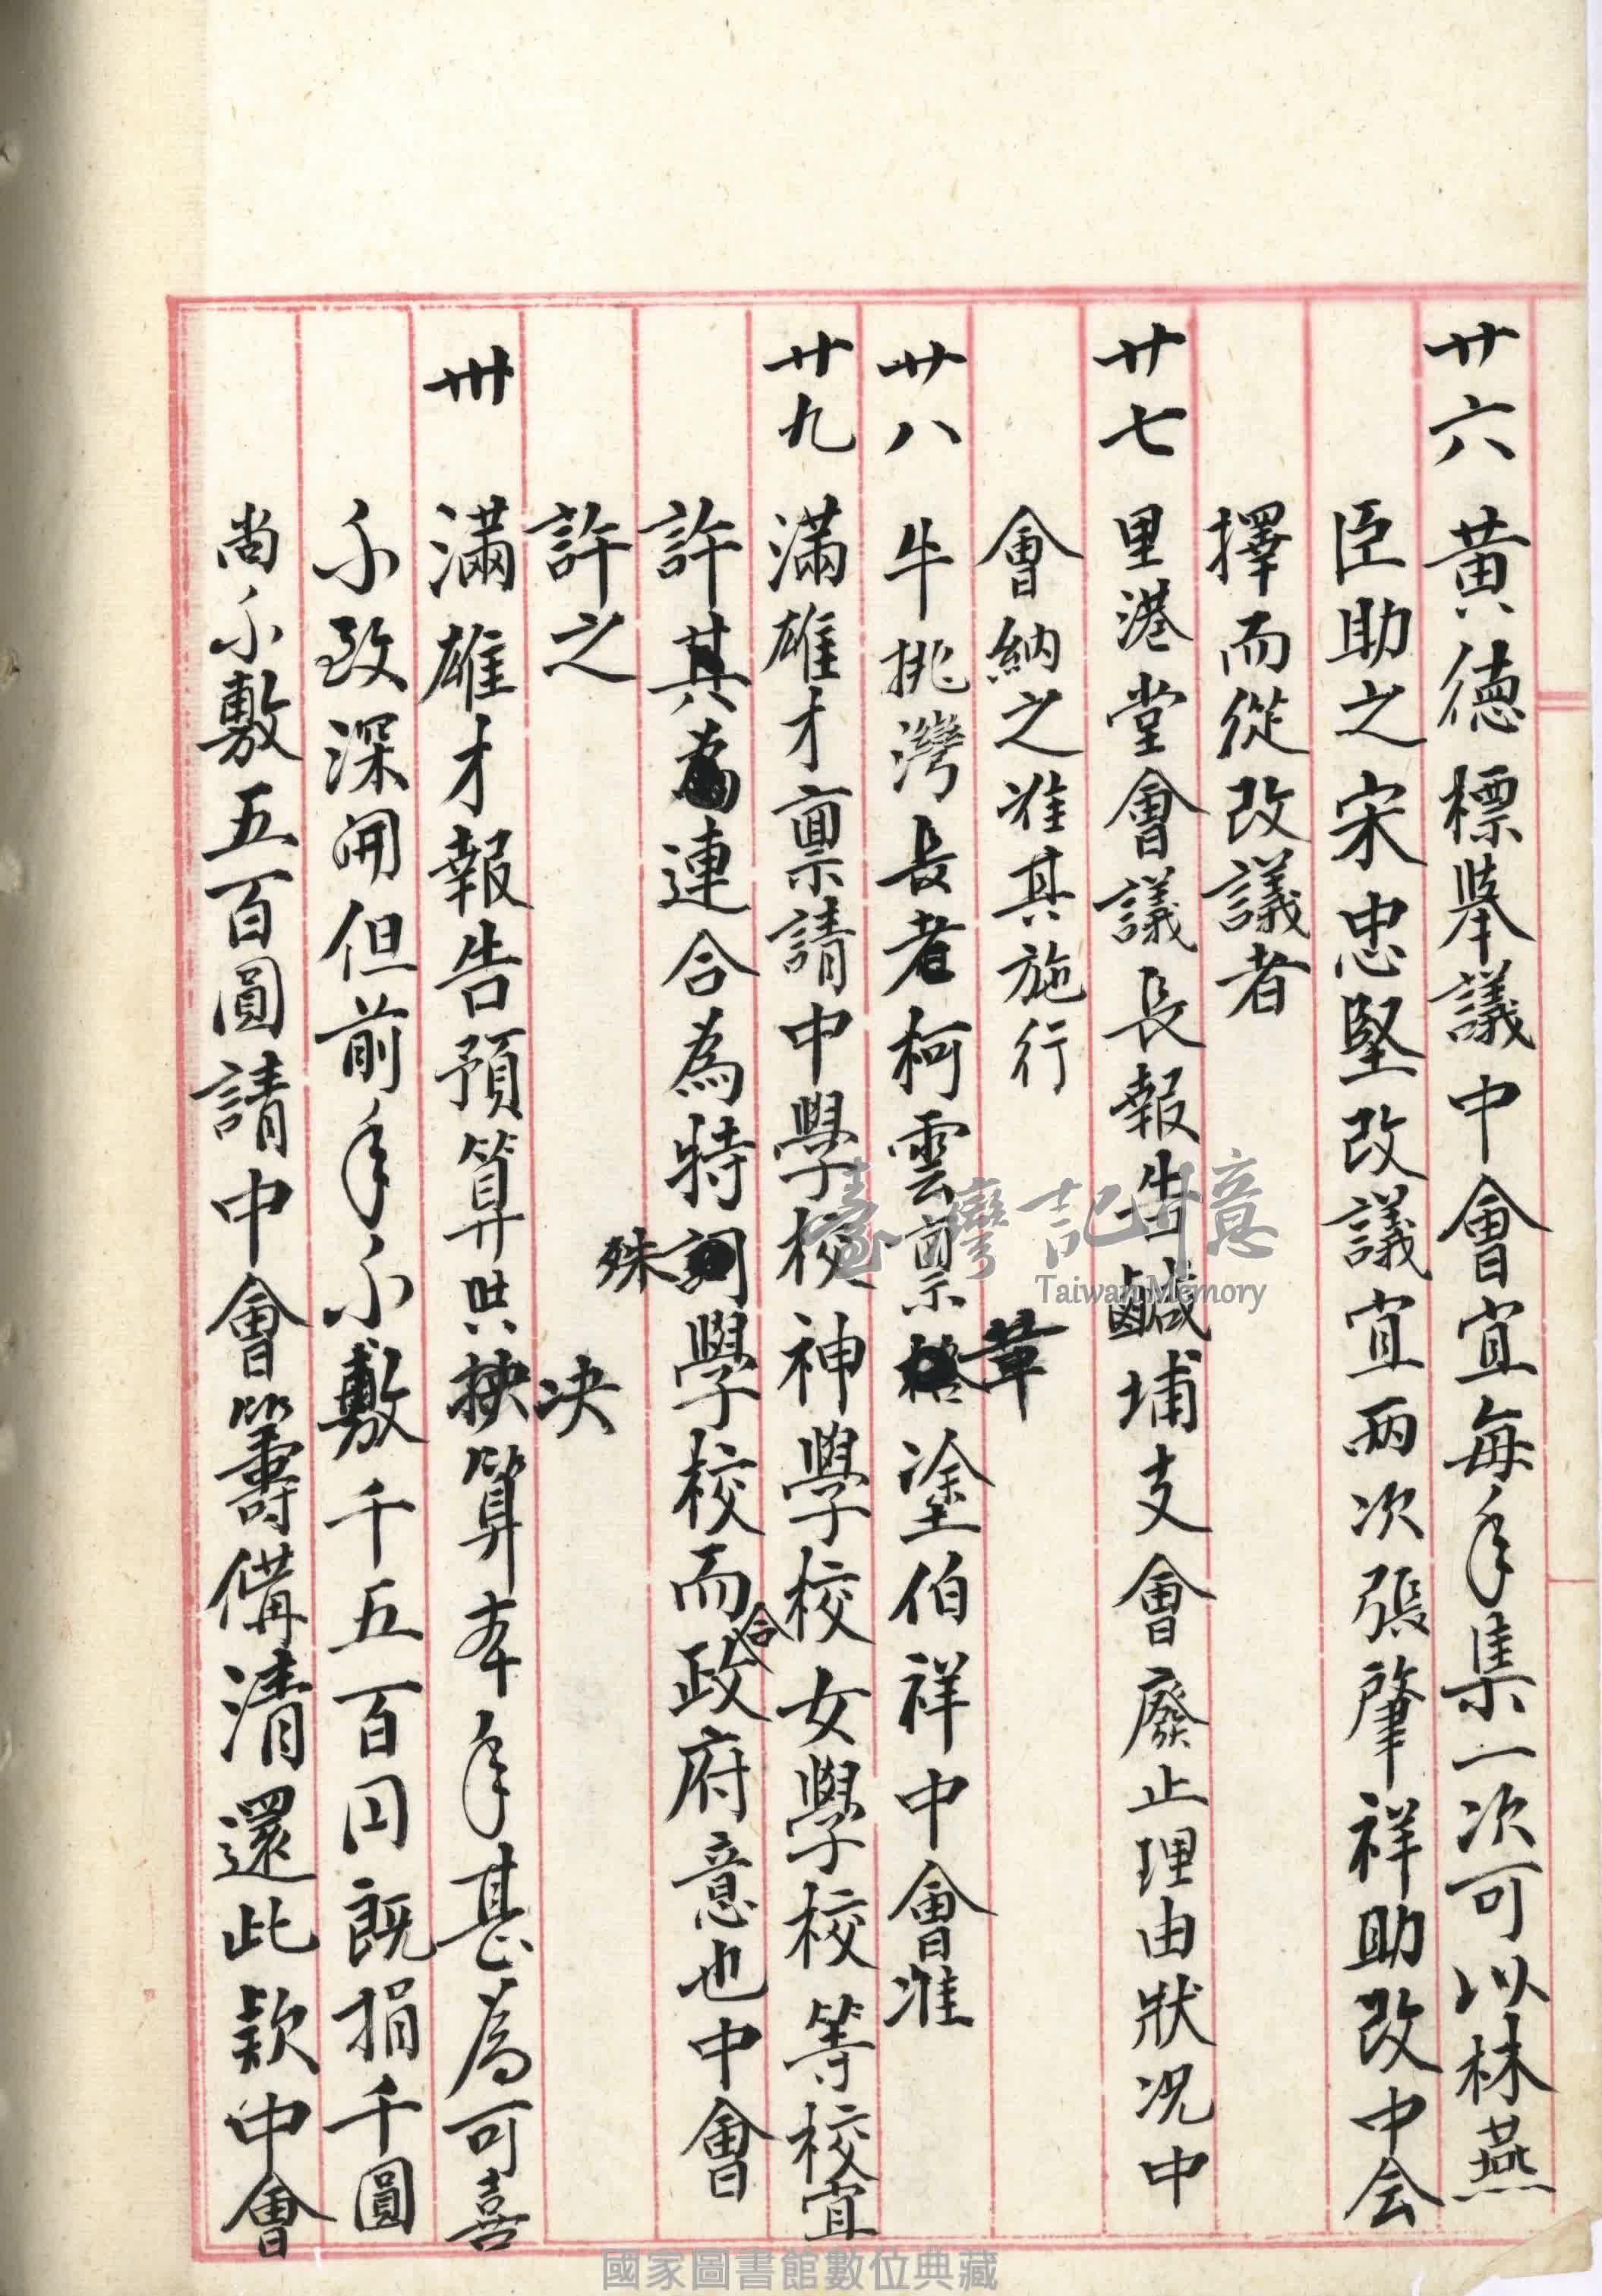 廿六 黃德標舉議中會宜每年集一次可以林燕
臣助之宋忠堅改議宜兩次張肇祥助改中会
擇而從改議者
廿七 里港堂會議長報告鹹埔支會廢止理由狀况中
會納之准其施行
廿八 牛挑灣長者柯雲禀塗伯祥中會准
葦
廿九 滿雄才禀請中學校神學校女學校等校宜
許其為連合為特學校而政府意也中會
殊
合
許之
卅 滿雄才報告預算共算本年甚為可喜
决
不致深開但前年不敷千五百円既捐千圓
尚不敷五百圓請中會籌備清還此款中會
臺灣記憶
Taiwan Memory
國家圖書館數位典藏